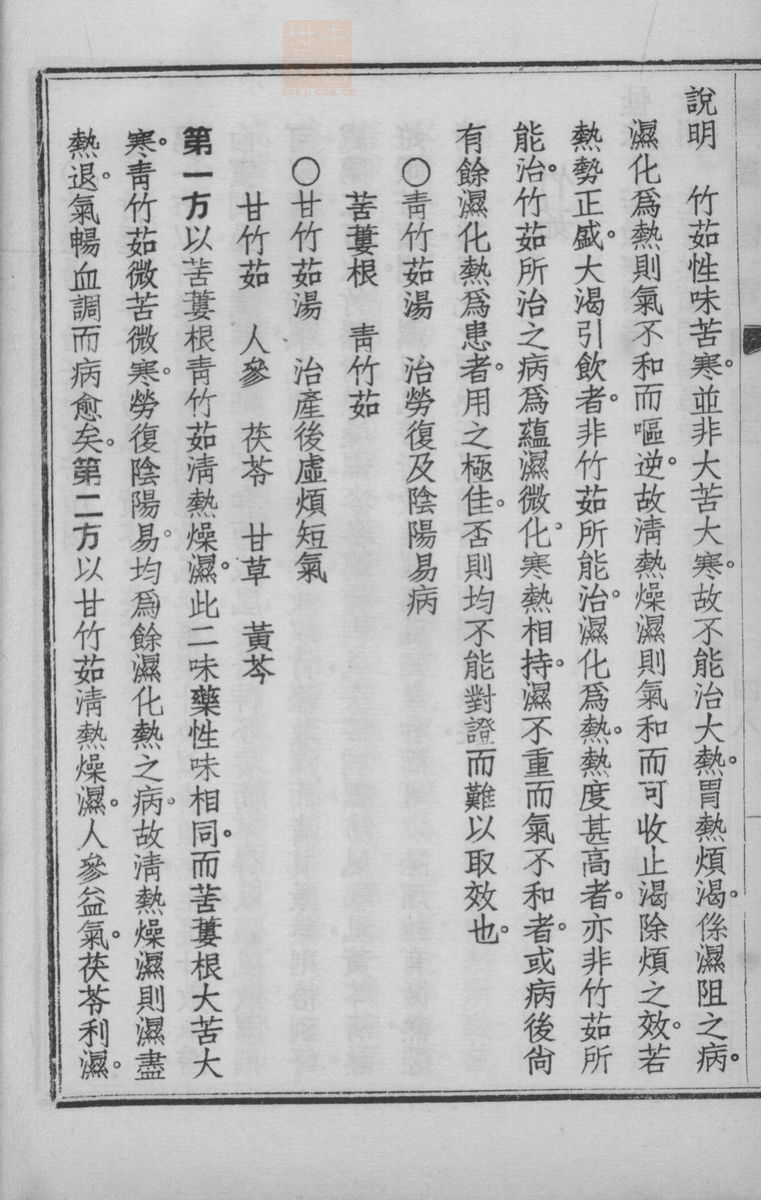 說明　竹茹性味苦寒。並非大苦大寒。故不能治大熱。胃熱煩渴。係濕阻之病。
濕化爲熱則氣不和而嘔逆。故清熱燥濕則氣和而可收止渴除煩之效。若
熱勢正盛。大渴引飲者。非竹茹所能治。濕化爲熱。熱度甚高者。亦非竹茹所
能治。竹茹所治之病爲蘊濕微化。寒熱相持。濕不重而氣不和者。或病後尙
有餘濕化熱爲患者。用之極佳。否則均不能對證而難以取效也。
〇靑竹茹湯　治勞復及陰陽易病
苦蔞根　靑竹茹
〇甘竹茹湯　治產後虛煩短氣
甘竹茹　人參　茯苓　甘草　黃芩
第一方以苦蔞根靑竹茹淸熱燥濕。此二味藥性味相同。而苦蔞根大苦大
寒。靑竹茹微苦微寒。勞復陰陽易。均爲餘濕化熱之病。故淸熱燥濕則濕盡
熱退。氣暢血調而病愈矣。第二方以甘竹茹淸熱燥濕。人參益氣。茯苓利濕。